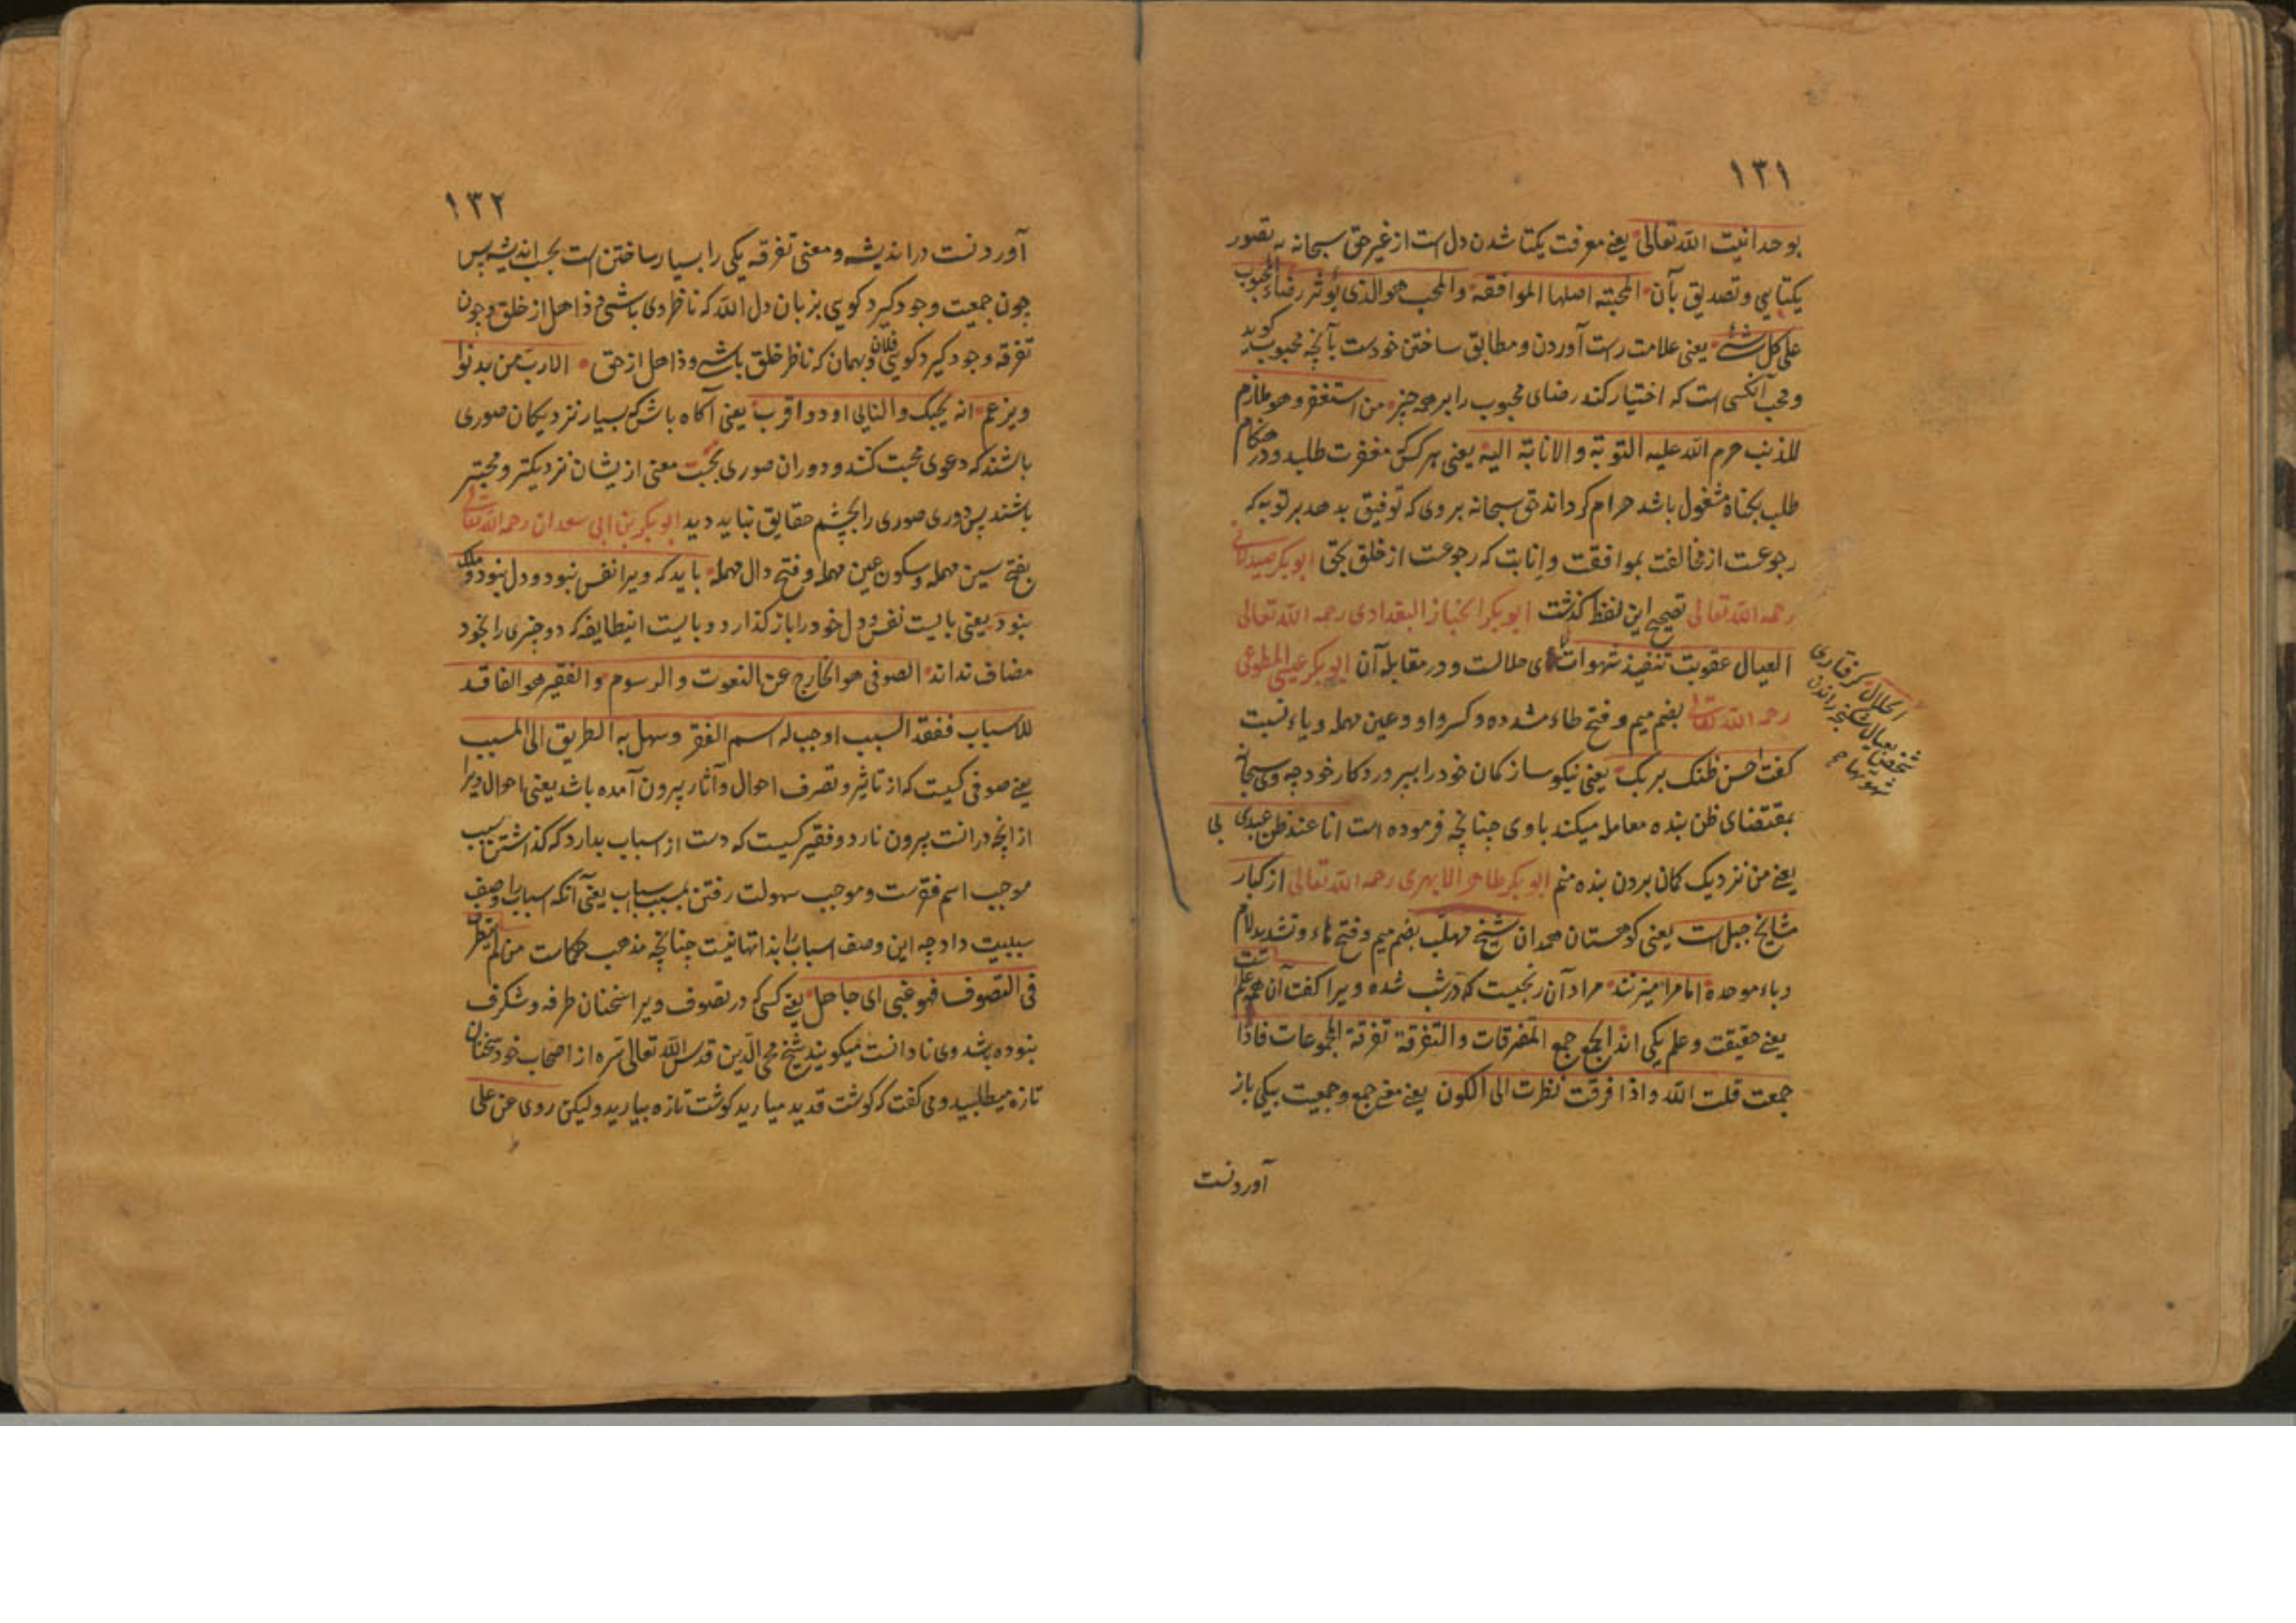 ۱۳۱
بوحدانیت الله تعالی یعنی معرفت یکتا شدن دل است از غیر حق سبحانه به تصور
یکتایی و تصدیق بآن المحبته اصلها الموافقة والمحب هو الذی یؤثر رضاء المحبوب
علی کل شئ یعنی علامت راست آوردن و مطابق ساختن خودست بآنچه محبوب گوید
و محب آنکسی است که اختیار کند رضای محبوب را بر همه چیز من استغفر و هو ملازم
للذنب حرم الله علیه التوبة والانابة الیه یعنی هر کس مغفرت طلبد و در هنگام
طلب بگناه مشغول باشد حرام گرداند حق سبحانه بر وی که توفیق بدهد بر توبه که
رجوعست از مخالفت بموافقت و انابت که رجوعست از خلق بحق ابوبکر صیدلانی
رحمه الله تعالی تصحیح این لفظ گذشت ابوبکر الخباز البغدادی رحمه الله تعالی
العیال عقوبت تنفیذ شهوات ی حلالت و در مقابلهٔ آن ابوبکر عیسی المطوعی
رحمه الله تعالی بضم میم و فتح طاء مشدده و کسر واو و عین مهمله و یاء نسبت
گفت احسن ظنک بربک یعنی نیکو ساز گمان خود را بپروردگار خود چه وی سبحانه
بمقتضای ظن بنده معامله میکند با وی چنانچه فرموده است انا عند ظن عبدی بی
یعنی من نزدیک گمان بردن بنده منم ابوبکر طاهر الابهری رحمه الله تعالی از کبار
مشایخ جبل است یعنی کوهستان همدان شیخ مهلب بضم میم و فتح هاء و تشدید لام
و باء موحده اما مرا میزنند مراد آن رنجیست که در شب شده ویرا گفت آن همه علم است
یعنی حقیقت و علم یکی اند الجمع جمع المتفرقات والتفرقة تفرقة المجموعات فاذا
جمعت قلت الله و اذا فرقت نظرت الی الکون یعنی معنی جمع و جمعیت بیکی باز
آوردنست
الحلال گرفتاری
شخص بعیال شکنجه راندن
شهوتها
۱۳۲
آوردنست در اندیشه و معنی تفرقه یکی را بسیار ساختن است بحسب اندیشه پس
چون جمعیت وجود گیرد گویی بزبان دل الله که ناظر وی باشی و ذاهل از خلق و چون
تفرقه وجود گیرد گویی فلان و بهمان که ناظر خلق باشی و ذاهل از حق الا رب من یدنوا
ویزعم انه یحبک والنائی اود و اقرب یعنی آگاه باش که بسیار نزدیکان صوری
باشند که دعوی محبت کنند و دوران صوری بحسب معنی ازیشان نزدیکتر و محبتر
باشند پس دوری صوری را بچشم حقایق نباید دید ابوبکر بن ابی سعدان رحمه الله تعالی
بفتح سین مهمله و سکون عین مهمله و فتح دال مهمله باید که ویرا نفس نبود و دل نبود و ملک
نبود یعنی بایست نفس و دل خود را باز گذارد و بایست اینطایفه که دو چیزی را بخود
مضاف نداند الصوفی هو الخارج عن النعوت والرسوم والفقیر هو الفاقد
للاسباب ففقد السبب اوجب له اسم الفقر وسهل به الطریق الی المسبب
یعنی صوفی کسیت که از تاثیر و تصرف احوال و آثار بیرون آمده باشد یعنی احوال ویرا
از انچه درانست بیرون نارد و فقیر کسیت که دست از اسباب بدارد که گذاشتن سبب
موجب اسم فقرست و موجب سهولت رفتن بمسبب اسباب یعنی آنکه اسباب را وصف
سببیت داد چه این وصف اسباب را بذاتها نیست چنانچه مذهب حکماست من لم ینظر
فی التصوف فهو غبی ای جاهل یعنی کسی که در تصوف ویرا سخنان طرفه و شگرف
نبوده باشد وی نادانست میگویند شیخ محی الدین قدس الله تعالی سره از اصحاب خود سخنان
تازه میطلبید و می گفت که گوشت قدید میارید گوشت تازه بیارید ولیکن روی عن علی